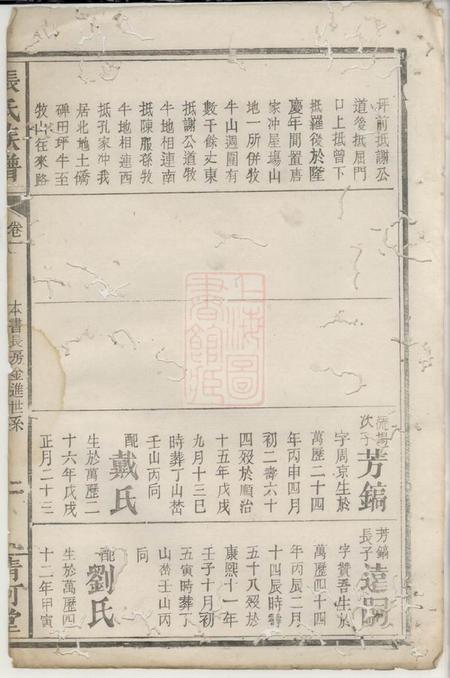 坪前抵謝公
道後抵屈門
口上抵曾下
抵羅後於隆
慶年間置唐
家冲屋塲山
地一所併牧
牛山週圍有
數千餘丈東
抵謝公道牧
牛地相連南
抵陳服孫牧
牛地相連西
抵孔家冲我
居北地土僑
碑田坪牛至
牧山往來路
次子芳鎬
字周京生於
萬歷二十四
年丙申四月
初二壽六十
四殁於順治
十五年戊戌
九月十三巳
時葬丁山塋
壬山丙向
配戴氏
生於萬歷二
十六年戊戌
正月二十三
芳鎬
長子
字贊吾生於
萬歷四十四
年丙辰二月
十四辰時壽
五十八殁於
康熙十一年
壬子十月初
五寅時葬丁
山塋壬山丙
向
配劉氏
生於萬歷四
十二年甲寅
張氏族譜
卷一
本書長房金進世系
清河堂
上海圖書館藏